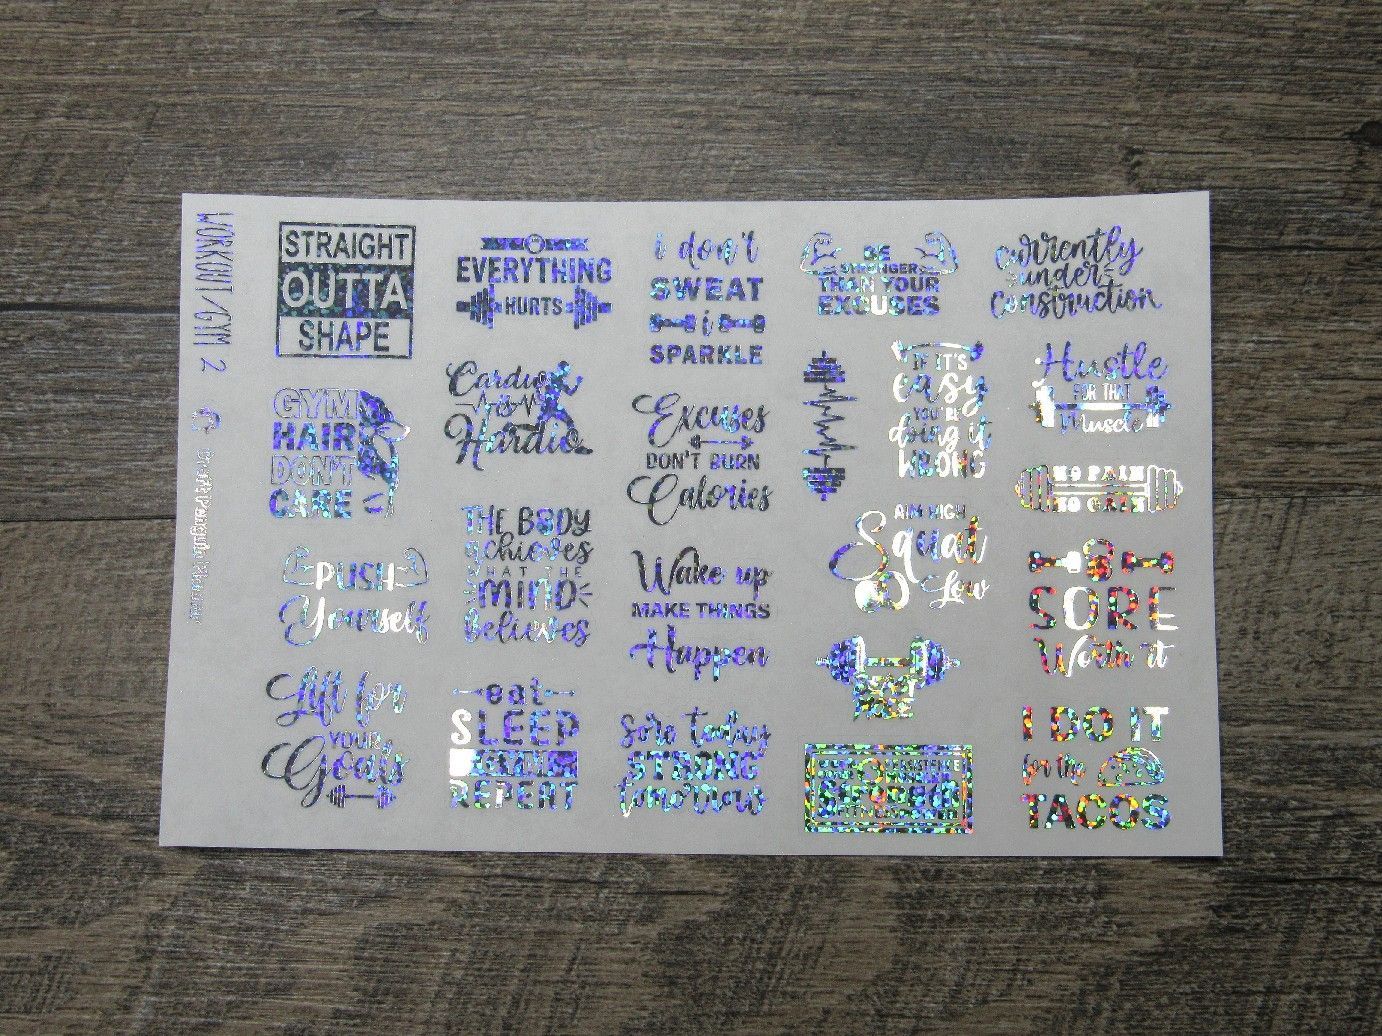 WORKOUT/GYM 2
STRAIGHT
OUTTA
SHAPE
EVERYTHING
HURTS
i don't
SWEAT
i
SPARKLE
BE
STRONGER
THAN YOUR
EXCUSES
Currently
under
Construction
GYM
HAIR
DON'T
CARE
Cardio
is
Hardio
Excuses
DON'T BURN
Calories
IF IT'S
easy
YOU'RE
doing it
WRONG
Hustle
FOR THAT
Muscle
NO PAIN
NO GAIN
PUSH
Yourself
THE BODY
achieves
WHAT THE
MIND
believes
Wake up
MAKE THINGS
Happen
AIM HIGH
Squat
Low
SORE
Worth it
Lift for
YOUR
Goals
eat
SLEEP
GYM
REPEAT
sore today
STRONG
tomorrow
I DO IT
for the
TACOS